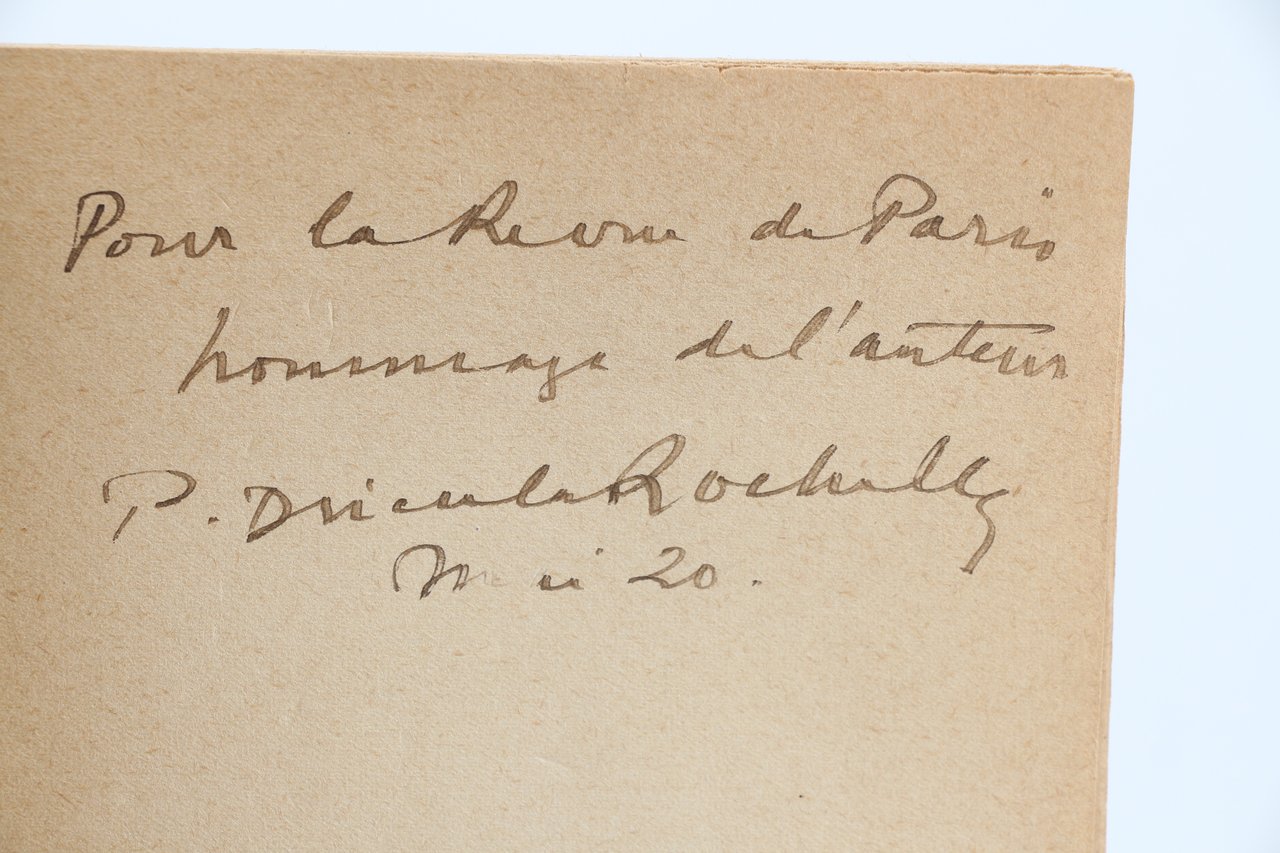 Pour la Revue de Paris
hommage de l'auteur
P. Drieu la Rochelle
Mai 20.